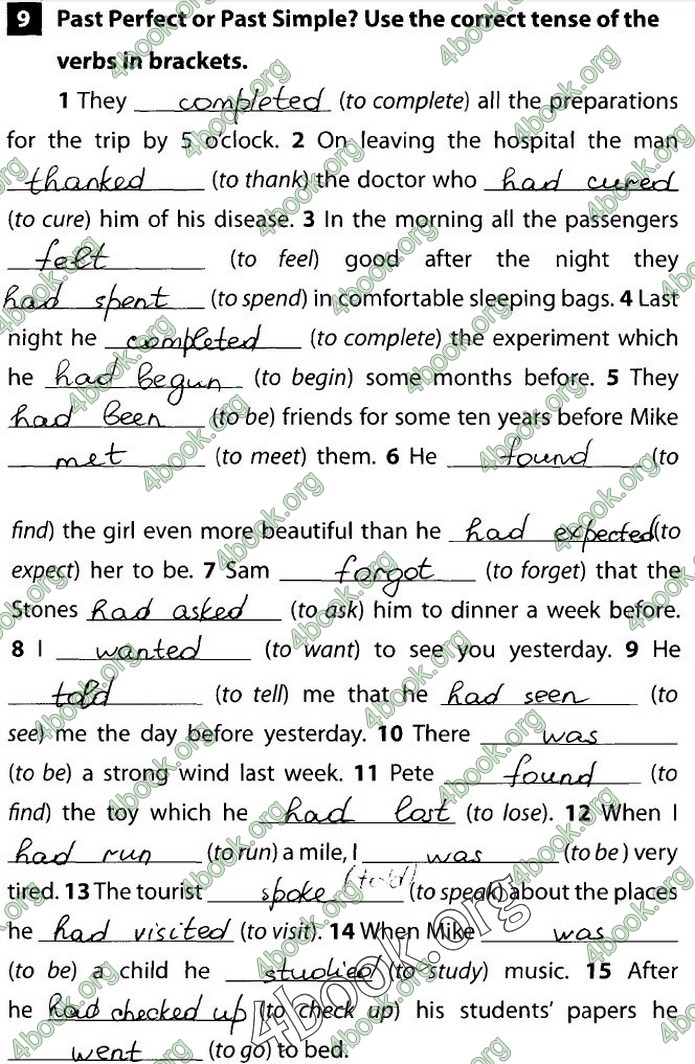 9 Past Perfect or Past Simple? Use the correct tense of the
verbs in brackets.
1 They completed (to complete) all the preparations
for the trip by 5 o'clock. 2 On leaving the hospital the man
thanked (to thank) the doctor who had cured
(to cure) him of his disease. 3 In the morning all the passengers
felt (to feel) good after the night they
had spent (to spend) in comfortable sleeping bags. 4 Last
night he completed (to complete) the experiment which
he had begun (to begin) some months before. 5 They
had been (to be) friends for some ten years before Mike
met (to meet) them. 6 He found (to
find) the girl even more beautiful than he had expected (to
expect) her to be. 7 Sam forgot (to forget) that the
Stones had asked (to ask) him to dinner a week before.
8 I wanted (to want) to see you yesterday. 9 He
told (to tell) me that he had seen (to
see) me the day before yesterday. 10 There was
(to be) a strong wind last week. 11 Pete found (to
find) the toy which he had lost (to lose). 12 When I
had run (to run) a mile, I was (to be) very
tired. 13 The tourist spoke (told) (to speak) about the places
he had visited (to visit). 14 When Mike was
(to be) a child he studied (to study) music. 15 After
he had checked up (to check up) his students' papers he
went (to go) to bed.
4book.org